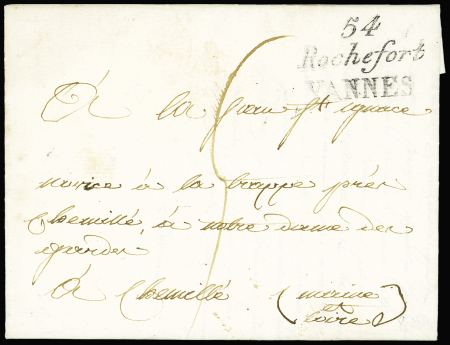 54
Rochefort
VANNES
À la sœur St ignace
novice à la trappe près
Chemillé, à notre dame des
gardes
À Chemillé (maine
et
loire)